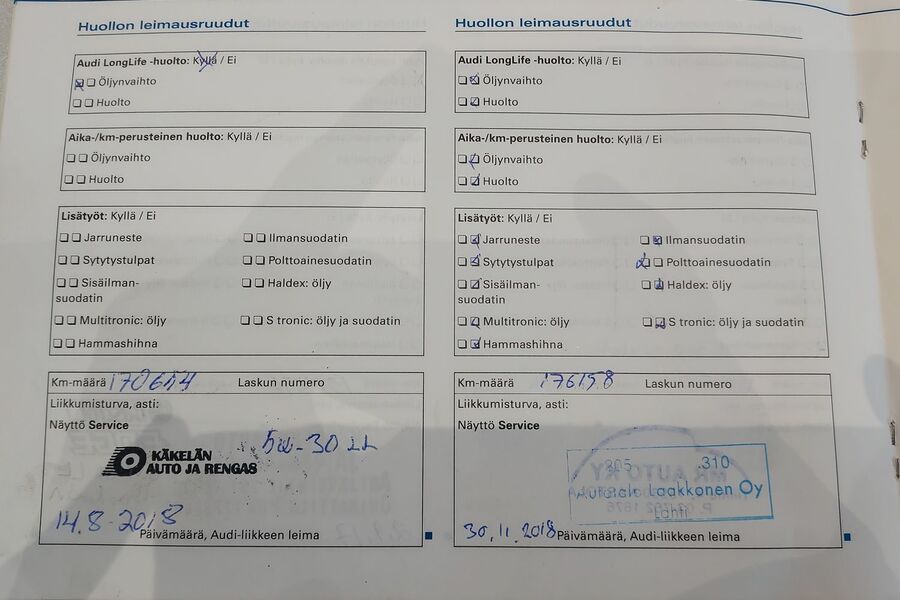 Huollon leimausruudut
Audi LongLife -huolto: Kyllä / Ei
Öljynvaihto
Huolto
Aika-/km-perusteinen huolto: Kyllä / Ei
Öljynvaihto
Huolto
Lisätyöt: Kyllä / Ei
Jarruneste
Ilmansuodatin
Sytytystulpat
Polttoainesuodatin
Sisäilman-
suodatin
Haldex: öljy
Multitronic: öljy
S tronic: öljy ja suodatin
Hammashihna
Km-määrä 170654 Laskun numero
Liikkumisturva, asti:
Näyttö Service
5w-30 LL
KÄKELÄN
AUTO JA RENGAS
14.8-2018
Päivämäärä, Audi-liikkeen leima
Huollon leimausruudut
Audi LongLife -huolto: Kyllä / Ei
Öljynvaihto
Huolto
Aika-/km-perusteinen huolto: Kyllä / Ei
Öljynvaihto
Huolto
Lisätyöt: Kyllä / Ei
Jarruneste
Ilmansuodatin
Sytytystulpat
Polttoainesuodatin
Sisäilman-
suodatin
Haldex: öljy
Multitronic: öljy
S tronic: öljy ja suodatin
Hammashihna
Km-määrä 176158 Laskun numero
Liikkumisturva, asti:
Näyttö Service
305 310
Autotalo Laakkonen Oy
Lahti
30.11.2018 Päivämäärä, Audi-liikkeen leima